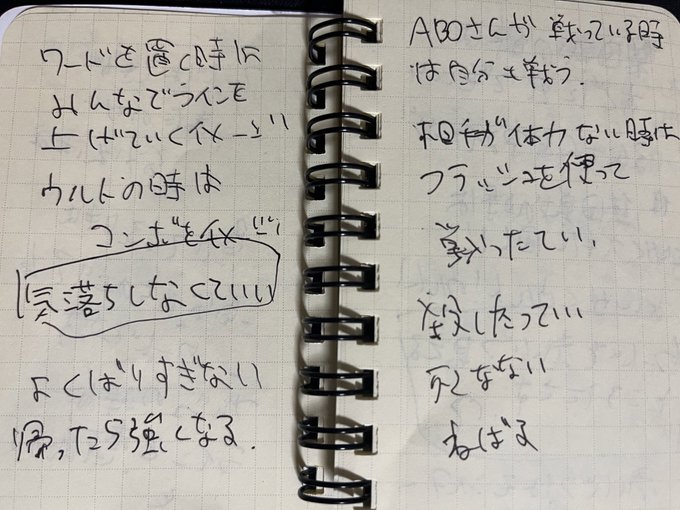 ワードを置く時は
みんなでラインを
上げていくイメージ
ウルトの時は
コンボをイメージ
気落ちしなくていい
よくばりすぎない
帰ったら強くなる.
ABOさんが戦っている時
は自分も戦う.
相手が体力ない時は
フラッシュを使って
戦ったてい、
殺したっていい
死なない
ねばる